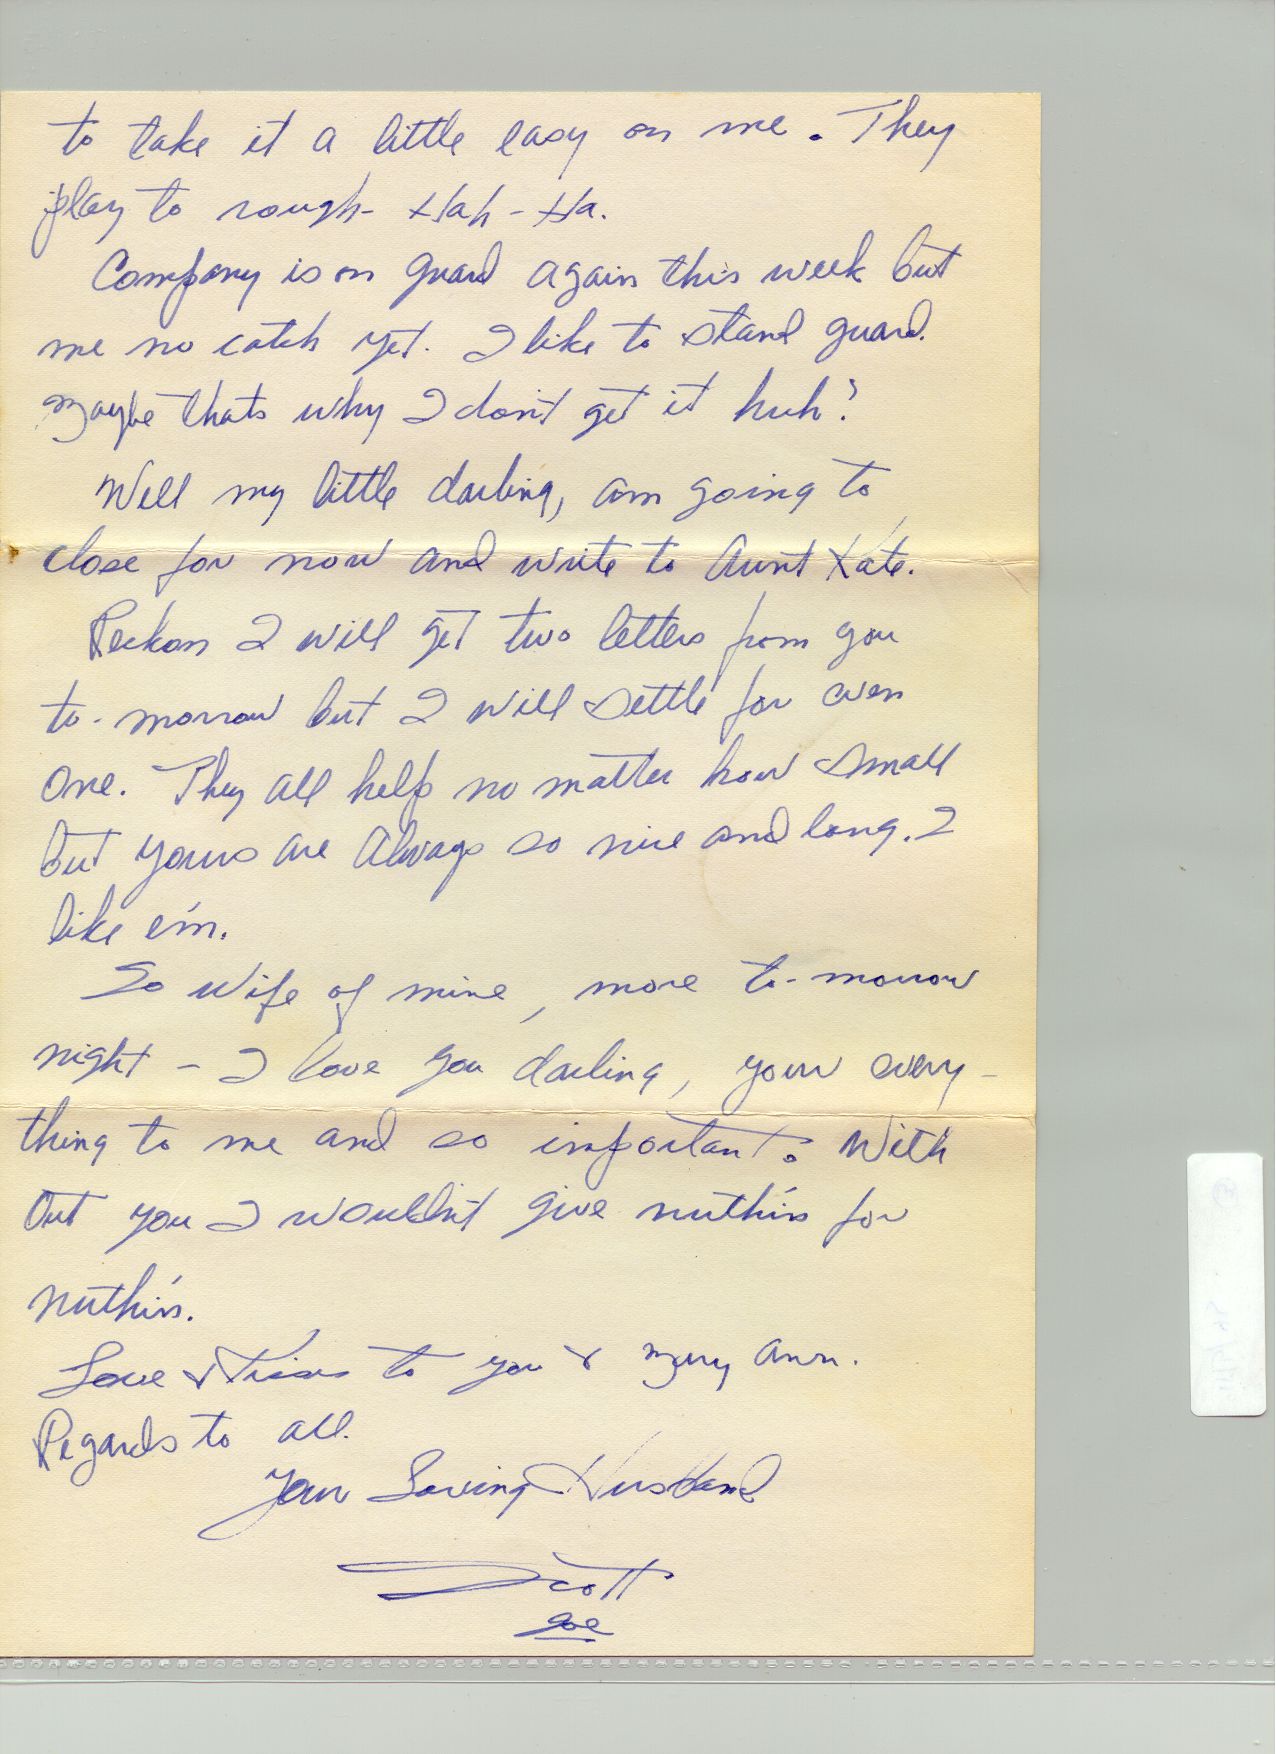 to take it a little easy on me. They
play to rough- Hah - Ha.
Company is on guard again this week but
me no catch yet. I like to stand guard.
maybe thats why I don't get it huh?
Well my little darling, am going to
close for now and write to Aunt Kate.
Reckon I will get two letters from you
to-morrow but I will settle for even
one. They all help no matter how small
but yours are always so nice and long. I
like e'm.
So wife of mine, more to-morrow
night - I love you darling, your every-
thing to me and so important. With
out you I wouldn't give nuthin for
nuthin.
Love & Kisses to you & Mary Ann.
Regards to all.
Your Loving Husband
Scott